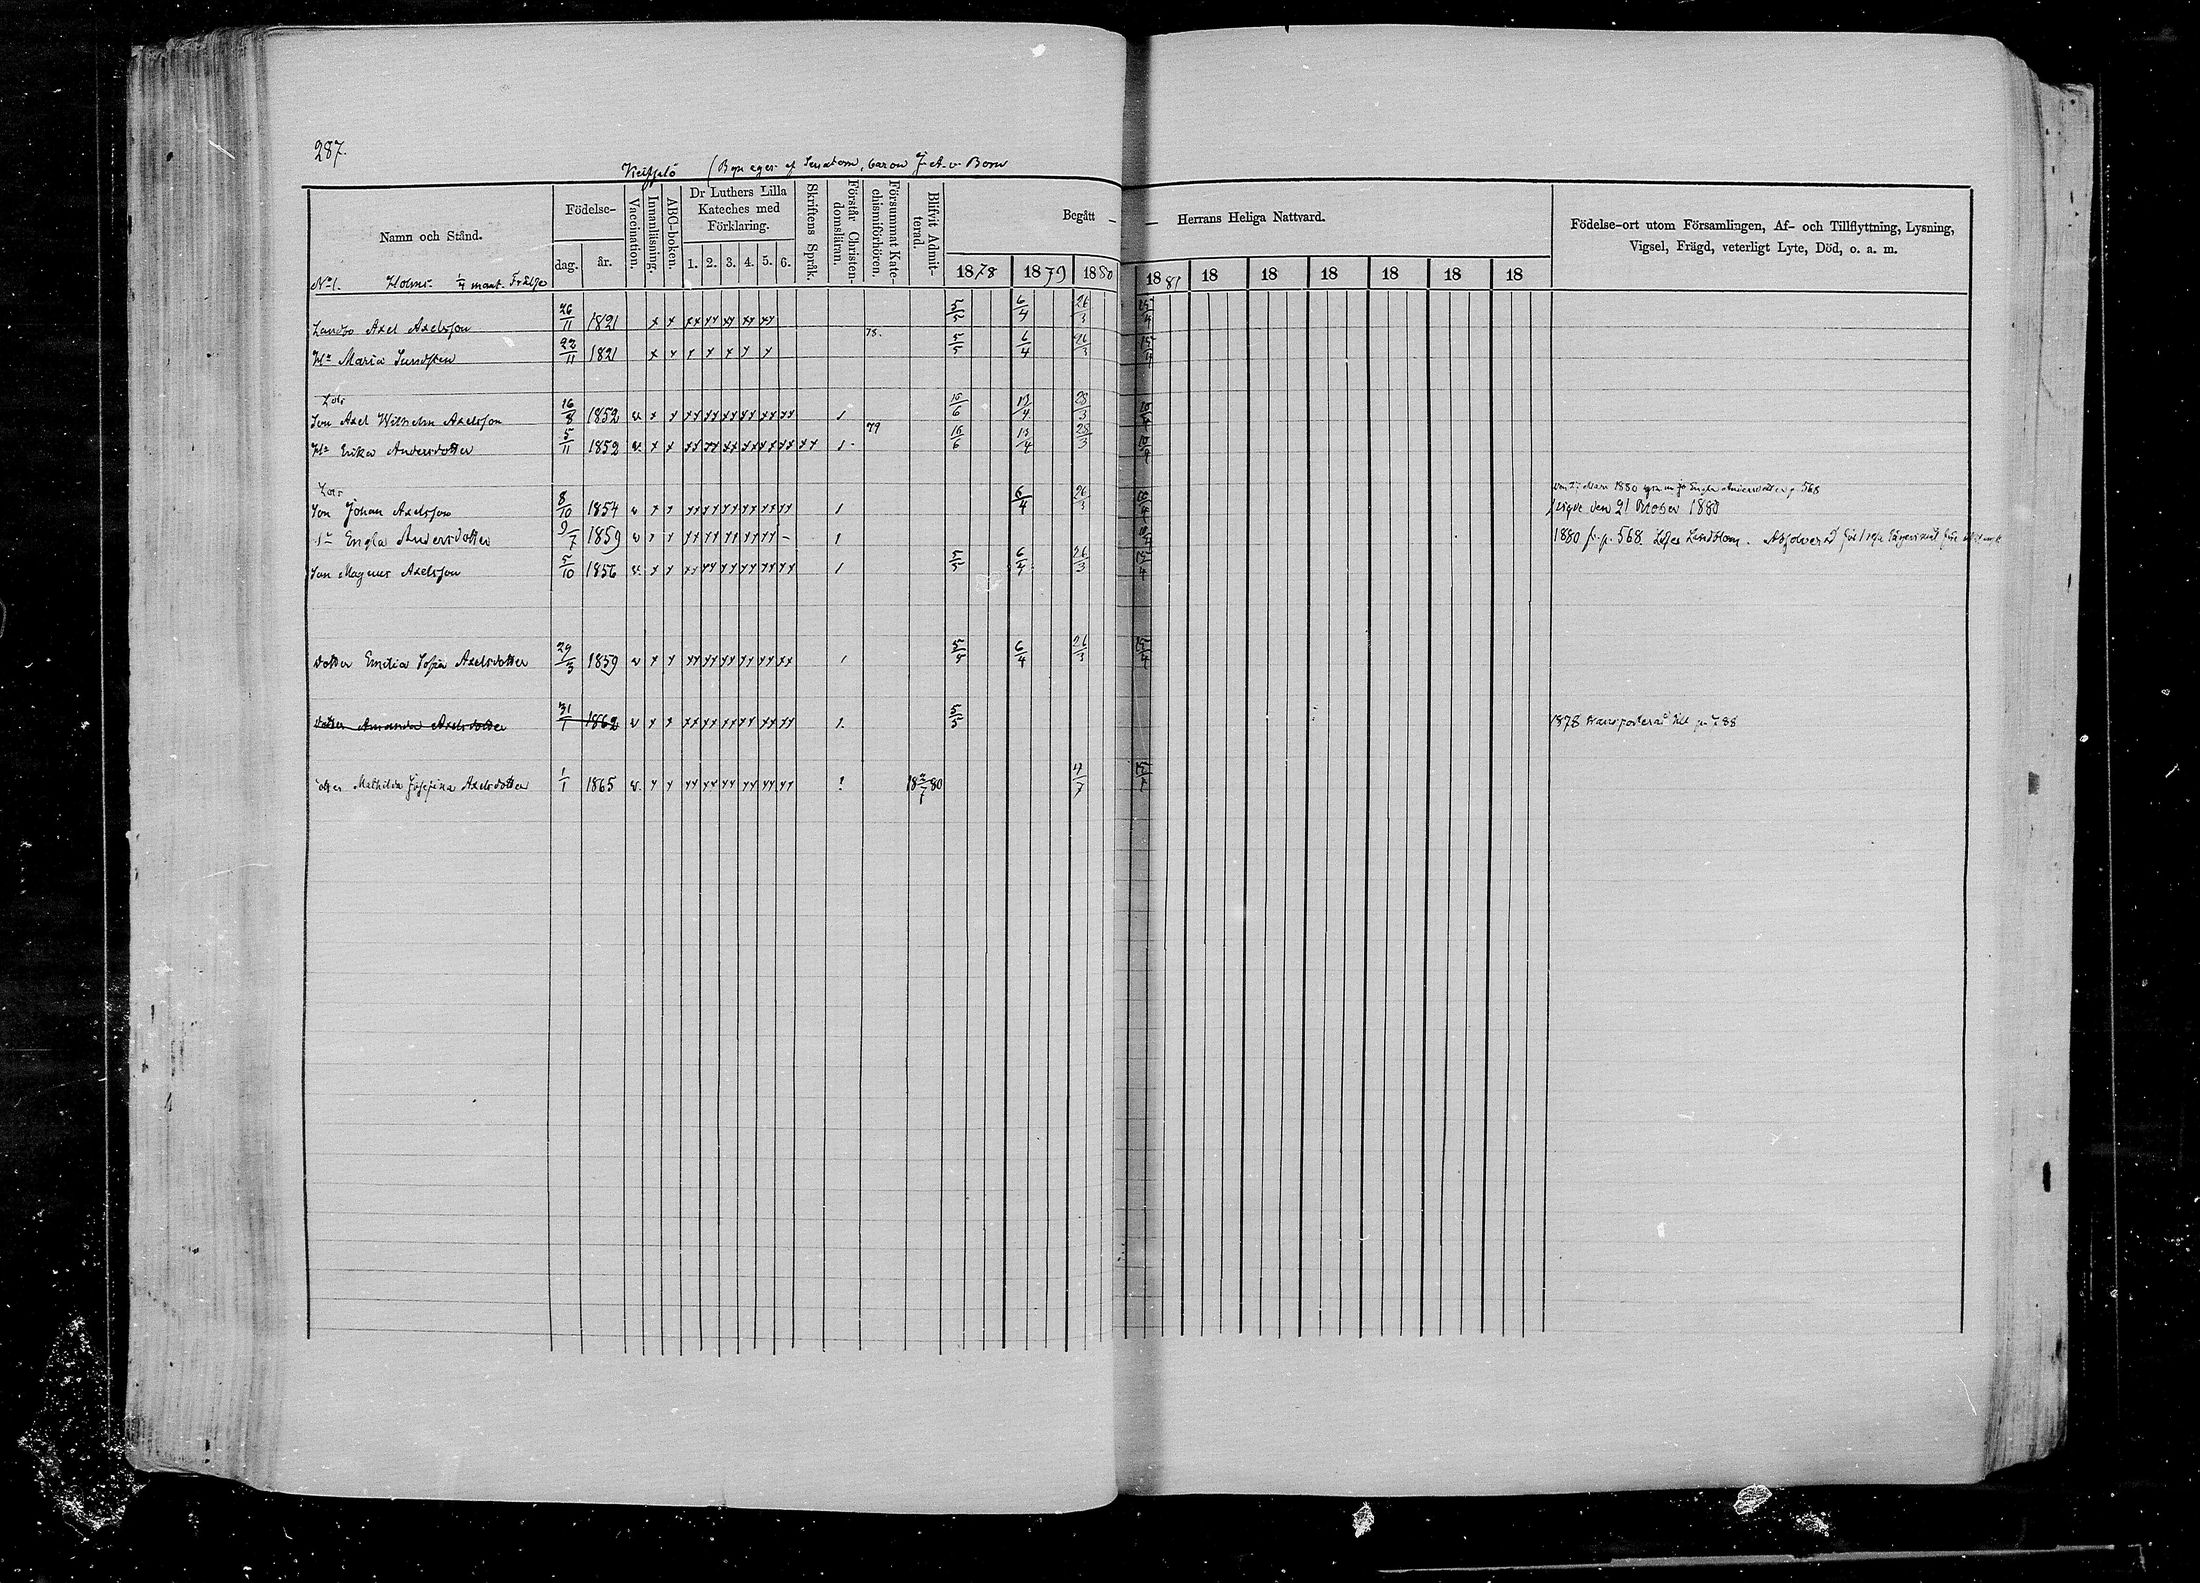 287.
(Byn eges af Senatorn, baron J. A. v. Born
Namn och Stånd.
Födelse-
dag.
år.
Vaccination.
Innanläsning.
ABC-boken.
Dr Luthers Lilla
Kateches med
Förklaring.
1. 2. 3. 4. 5. 6.
Skriftens Språk.
Förstår Christen-
domsläran.
Försummat Kate-
chismiförhören.
Blifvit Admit-
terad.
Begått — — Herrans Heliga Nattvard.
1878 1879 1880 1881 18 18 18 18 18 18
Födelse-ort utom Församlingen, Af- och Tillflyttning, Lysning,
Vigsel, Frägd, veterligt Lyte, Död, o. a. m.
No 1. Holms ¼ mant. Frälse
Landbo Axel Axelsson 26/11 1821 x x xx xx xx xx xx 5/5 6/4 26/3 15/4
Hu Maria 22/11 1821 x x x x x x x 78. 5/5 6/4 26/3 15/4
Son Axel Wilhelm Axelsson 16/8 1852 v. x x xx xx xx xx xx xx 1 16/6 13/4 28/3 10/4
Hu Erika Andersdotter 5/11 1852 v. x x xx xx xx xx xx xx xx 1. 79 16/6 13/4 28/3 10/4
Son Johan Axelsson 8/10 1854 v x x xx xx xx xx xx xx 1 6/4 26/3 15/4
1880 Engla Andersdotter p. 568
vigde den 21 October 1880
Engla Andersdotter 9/7 1859 v x x xx xx xx xx xx – 1
1880 fr. p. 568.
Son Magnus Axelsson 5/10 1856 v. x x xx xx xx xx xx xx 1 5/5 6/4 26/3 15/4
dotter Emilia Sofia Axelsdotter 29/3 1859 v x x xx xx xx xx xx xx 1 5/5 6/4 26/3 15/4
dotter Amanda Axelsdotter 31/1 1862 v x x xx xx xx xx xx xx 1. 5/5
1878 transporterad till p. 788
dotter Mathilda Josefina Axelsdotter 1/1 1865 v. x x xx xx xx xx xx xx 1 18 2/7 80 4/7 15/4